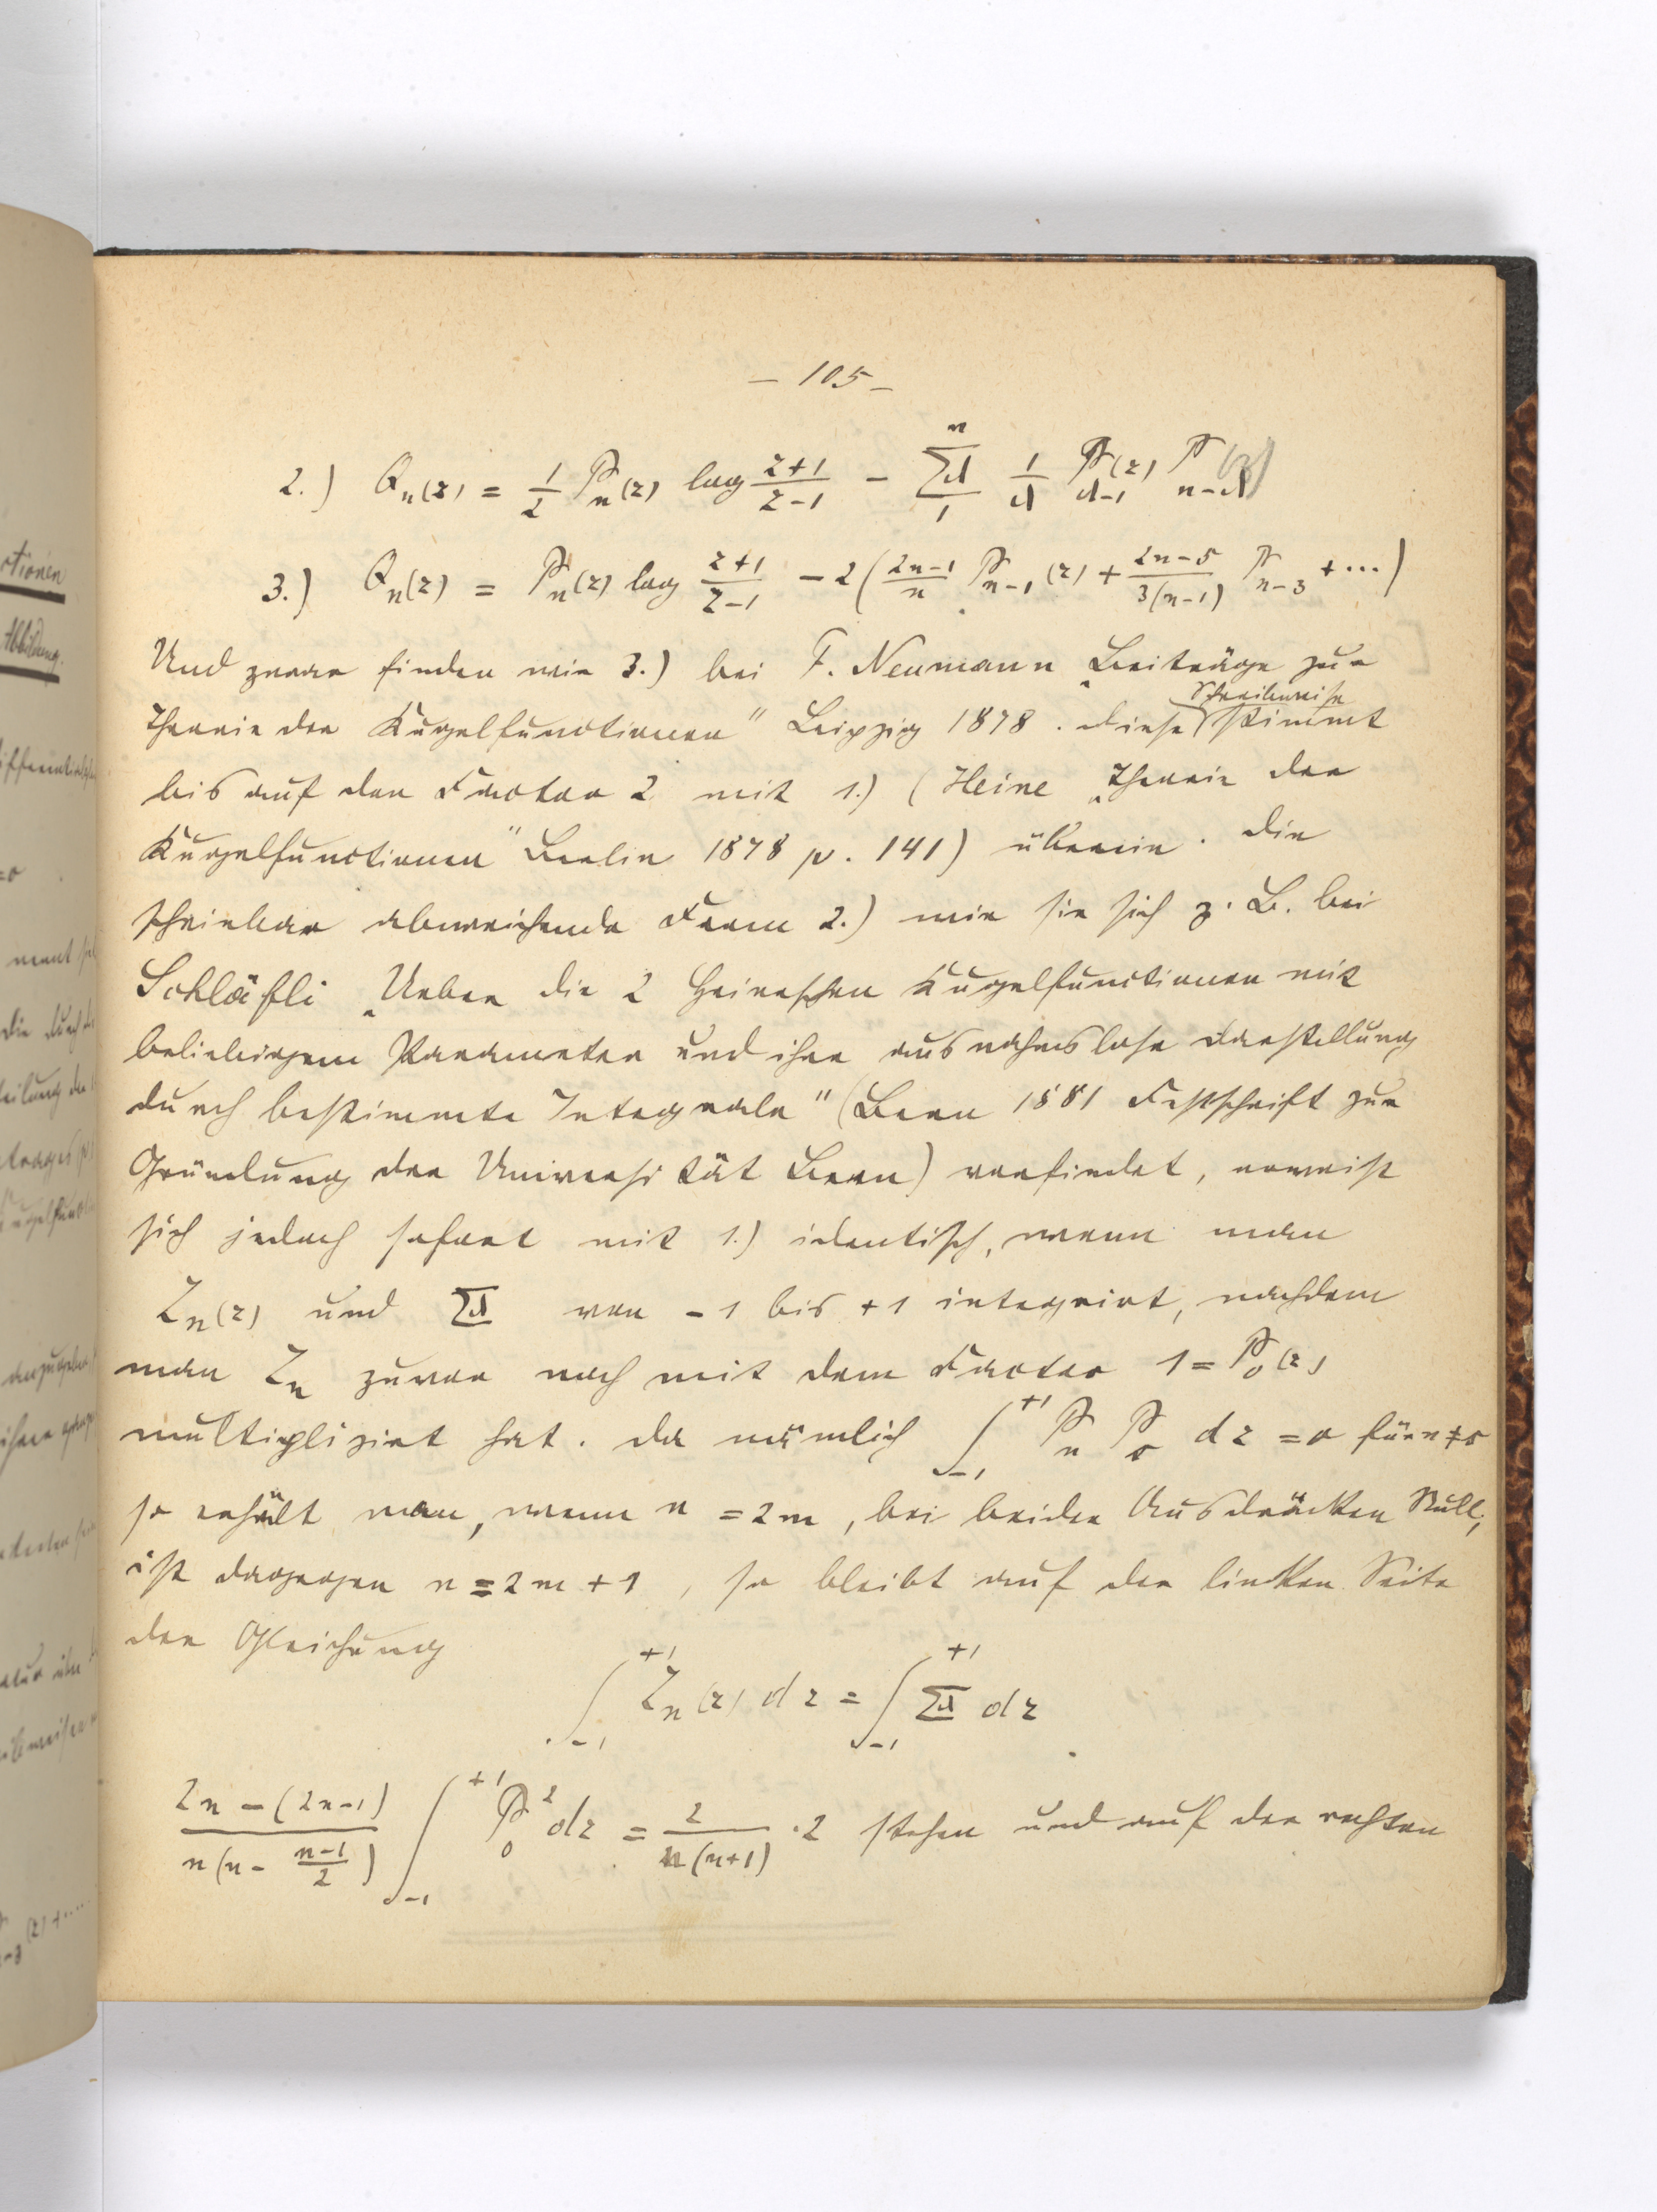 ctionen
Abbildung.
– 105 –
2.) Qn(z) = 1/2 Pn(z) log (z+1)/(z−1) − Σλ_1^n 1/λ P_{λ−1}(z) P_{n−λ}(z)
3.) Qn(z) = Pn(z) log (z+1)/(z−1) − 2 ( (2n−1)/n P_{n−1}(z) + (2n−5)/(3(n−1)) P_{n−3} + ⋯ )
Und zwar finden wir 3.) bei F. Neumann „Beiträge zur
Theorie der Kugelfunctionen" Leipzig 1878. diese Schreibweise stimmt
bis auf den Factor 2 mit 1.) (Heine „Theorie der
Kugelfunctionen" Berlin 1878 p. 141) überein. Die
scheinbar abweichende Form 2.) wie sie sich z. B. bei
Schläfli „Ueber die 2 Heineschen Kugelfunctionen mit
beliebigem Parameter und ihre ausnahmslose Darstellung
durch bestimmte Integrale" (Bern 1881 Festschrift zur
Gründung der Universität Bern) vorfindet, erweist
sich jedoch sofort mit 1.) identisch, wenn man
Zn(z) und Σλ von −1 bis +1 integrirt, nachdem
man Zn zuvor noch mit dem Factor 1 = P0(z)
multiplizirt hat. Da nämlich ∫_{−1}^{+1} Pn P0 dz = 0 für n ≠ 0
so erhält man, wenn n = 2m, bei beiden Ausdrücken Null;
ist dagegen n = 2m + 1, so bleibt auf der linken Seite
der Gleichung
∫_{−1}^{+1} Zn(z) dz = ∫_{−1}^{+1} Σλ dz
(2n − (2n−1))/(n(n − (n−1)/2)) ∫_{−1}^{+1} P0² dz = 2/(n(n+1)) · 2 stehen und auf der rechten